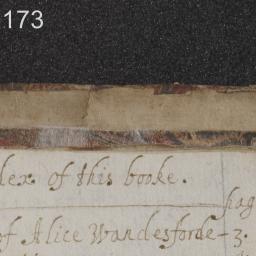 173
dex of this booke.
pag
of Alice Wandesforde - 3.